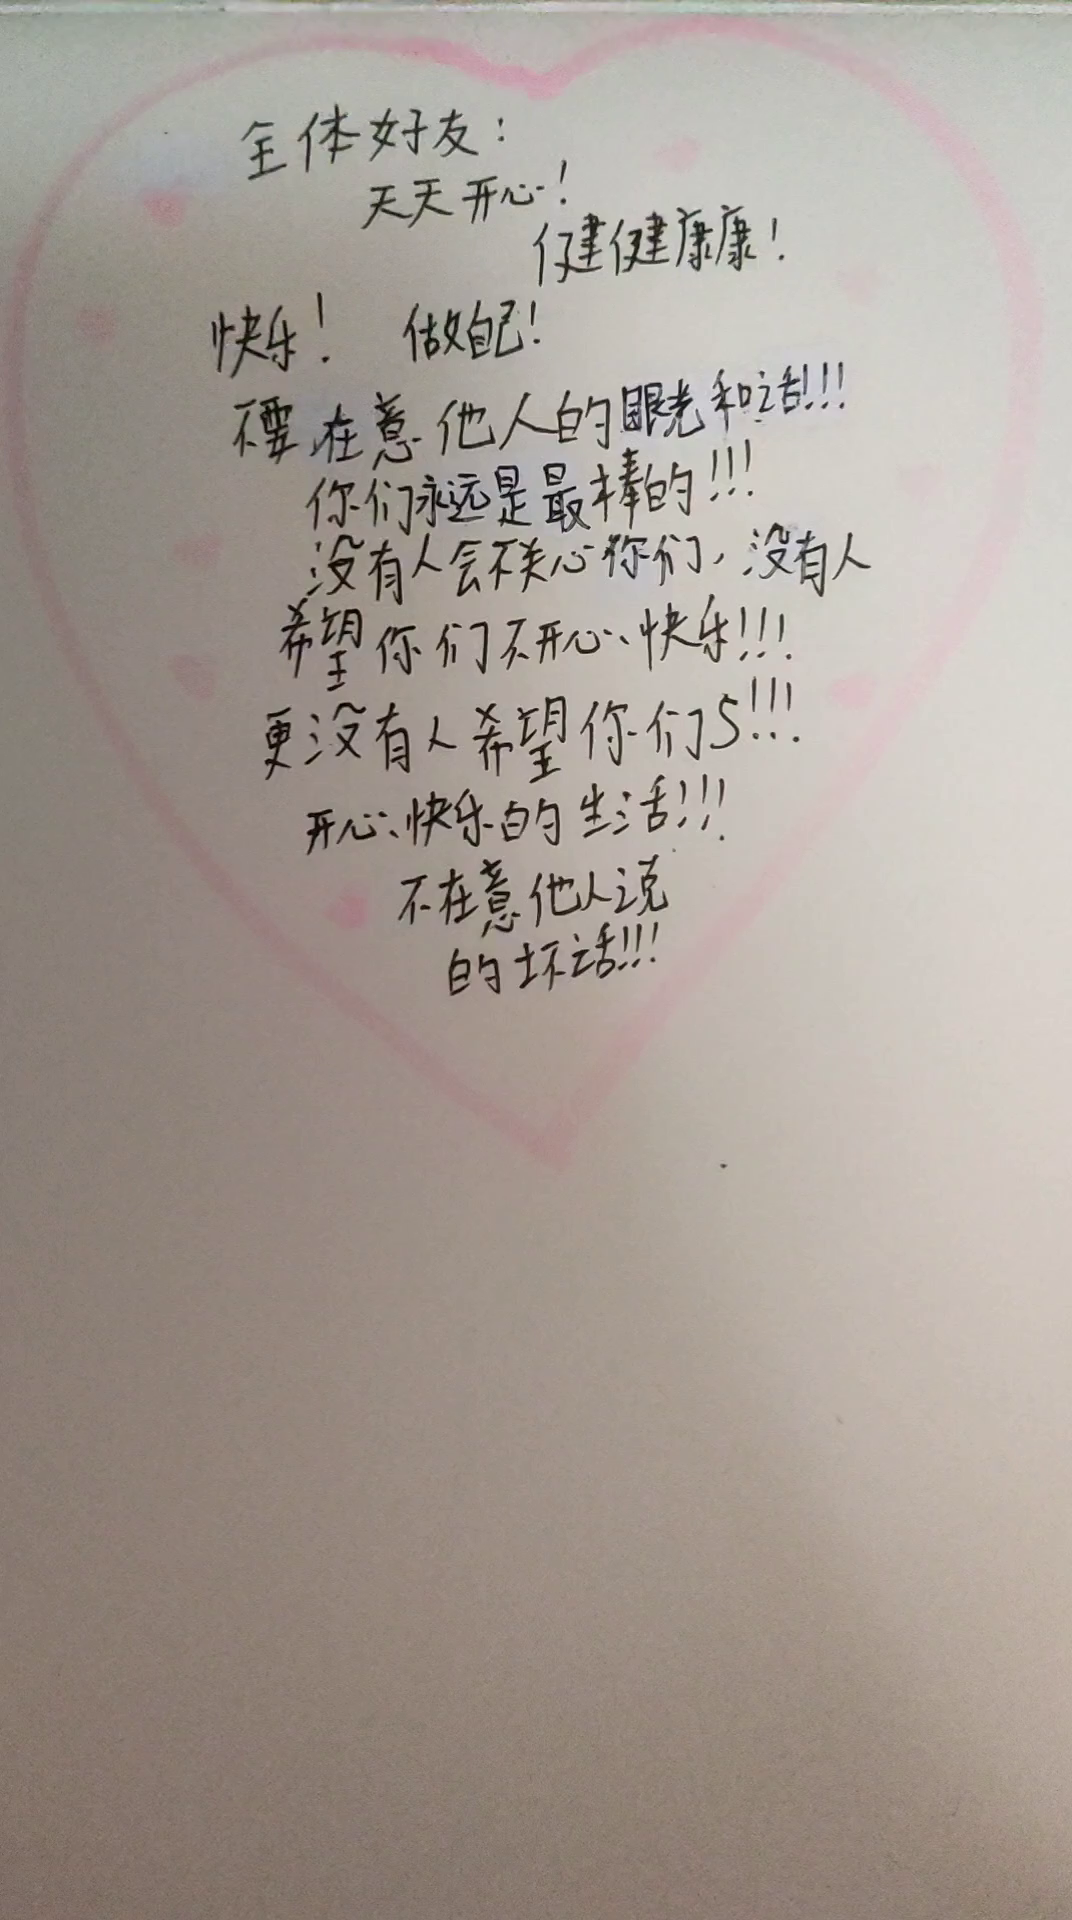 全体好友：
天天开心！
健健康康！
快乐！ 做自己！
不要在意他人的眼光和话!!!
你们永远是最棒的!!!
没有人会不关心你们，没有人
希望你们不开心、快乐!!!
更没有人希望你们S!!!
开心、快乐的生活!!!
不在意他人说
的坏话!!!